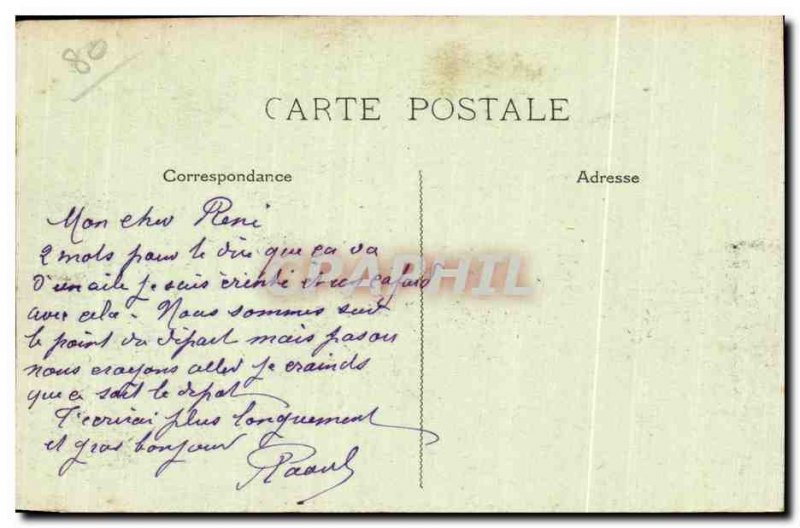 80
CARTE POSTALE
Correspondance
Adresse
Mon cher René
2 mots pour te dire que ça va
d'une aile je suis éreinté et un cafard
avec cela. Nous sommes sur
le point du départ mais pas ou
nous croyons aller je crains
que ça soit le depot
T'ecrirai plus longuement
et gros bonjour
Raoul
CPAPHIL